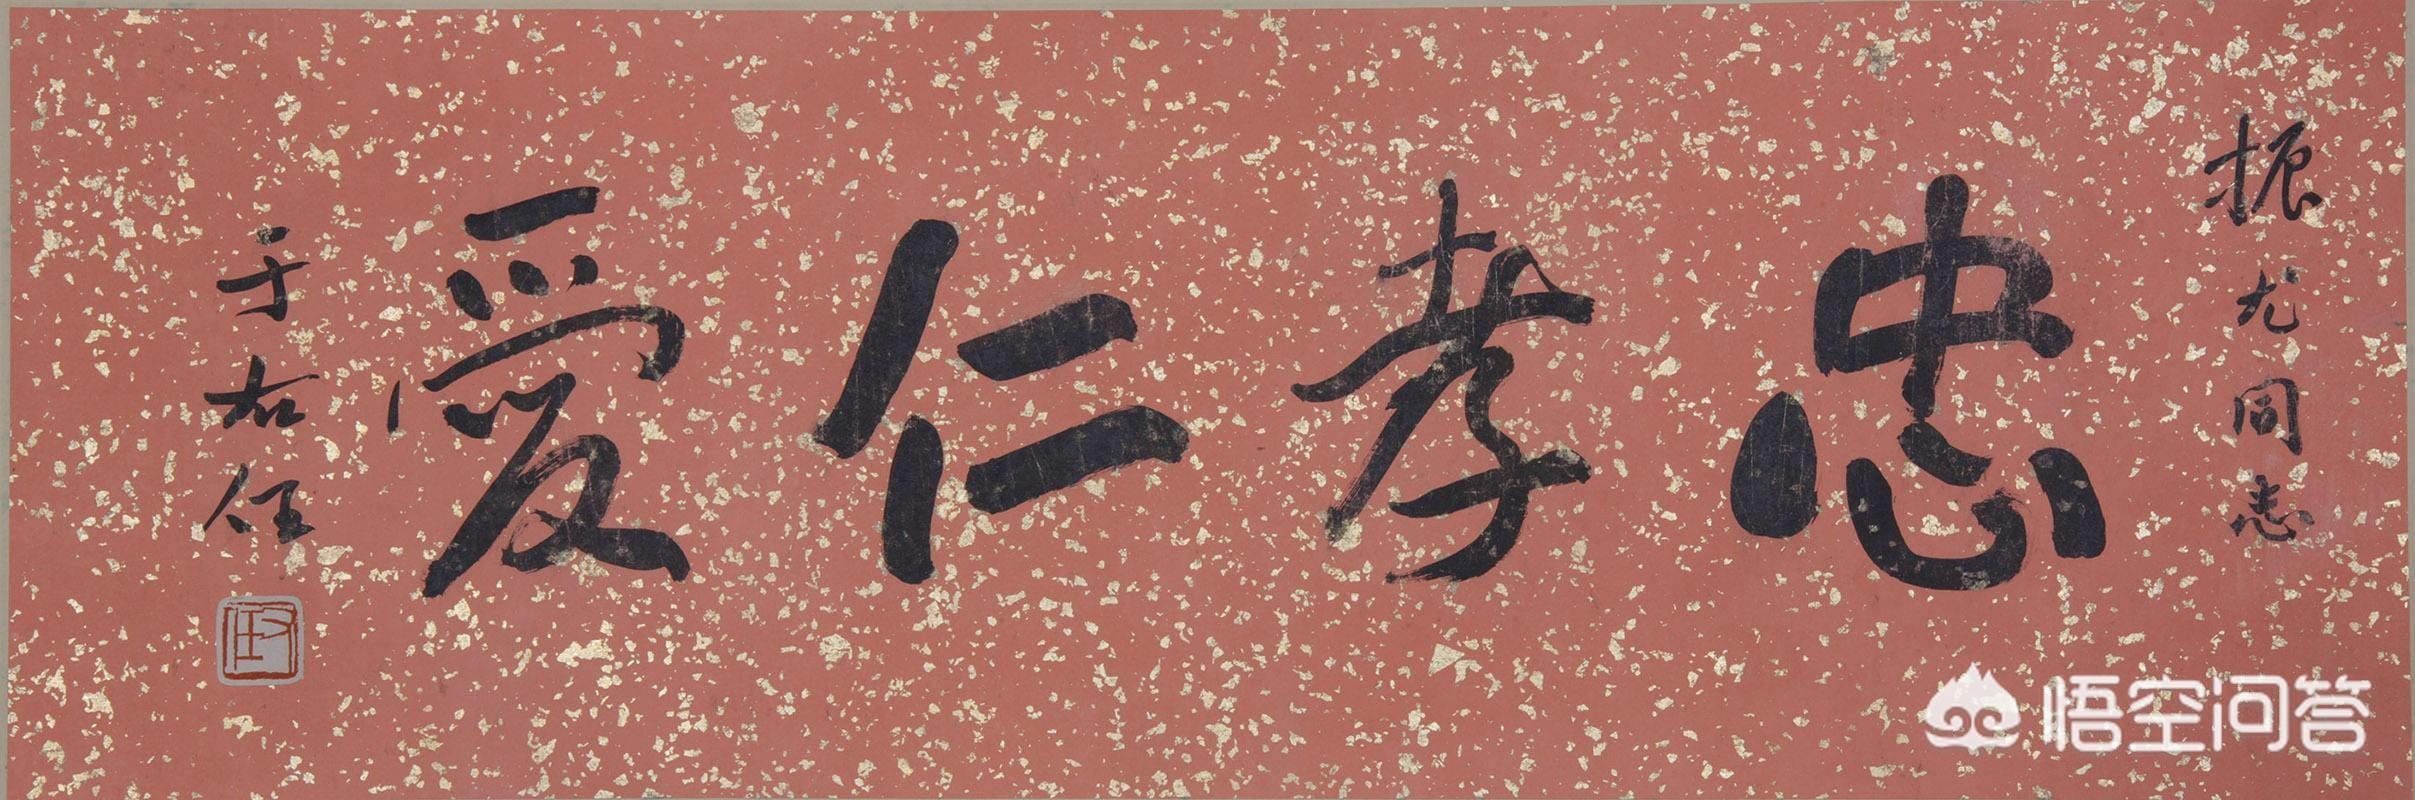 振尤同志
忠孝仁愛
于右任
右任
悟空问答